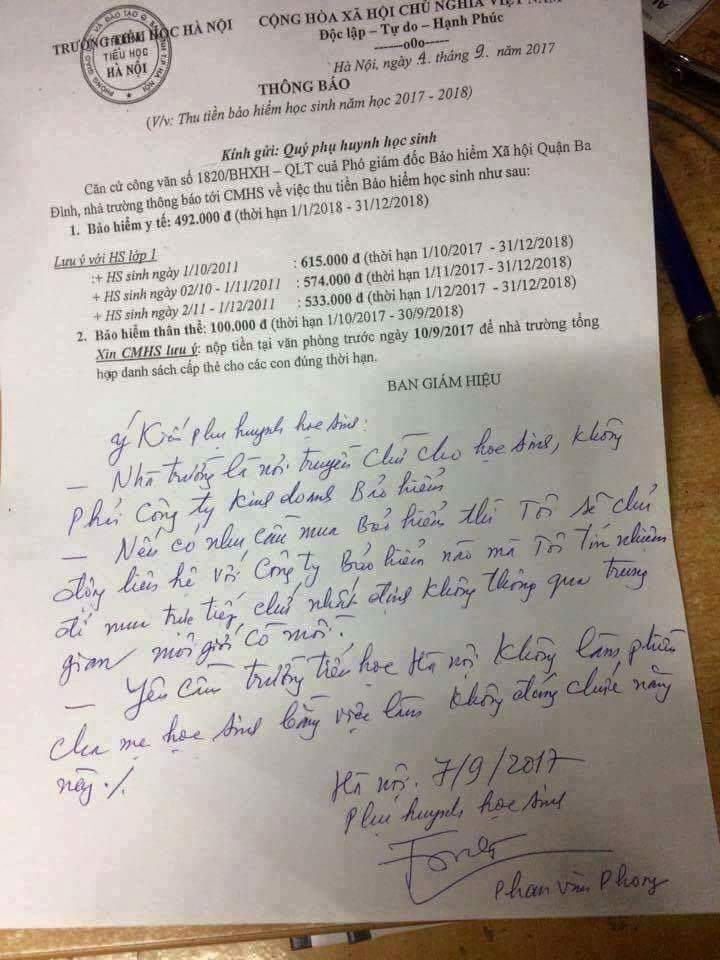 TRƯỜNG TIỂU HỌC HÀ NỘI
CỘNG HÒA XÃ HỘI CHỦ NGHĨA VIỆT NAM
Độc lập – Tự do – Hạnh Phúc
------o0o------
TIỂU HỌC
HÀ NỘI
Hà Nội, ngày 4 tháng 9 năm 2017
THÔNG BÁO
(V/v: Thu tiền bảo hiểm học sinh năm học 2017 - 2018)
Kính gửi: Quý phụ huynh học sinh
Căn cứ công văn số 1820/BHXH – QLT cuả Phó giám đốc Bảo hiểm Xã hội Quận Ba
Đình, nhà trường thông báo tới CMHS về việc thu tiền Bảo hiểm học sinh như sau:
1. Bảo hiểm y tế: 492.000 đ (thời hạn 1/1/2018 - 31/12/2018)
Lưu ý với HS lớp 1
:+ HS sinh ngày 1/10/2011 : 615.000 đ (thời hạn 1/10/2017 - 31/12/2018)
+ HS sinh ngày 02/10 - 1/11/2011 : 574.000 đ (thời hạn 1/11/2017 - 31/12/2018)
+ HS sinh ngày 2/11 - 1/12/2011 : 533.000 đ (thời hạn 1/12/2017 - 31/12/2018)
2. Bảo hiểm thân thể: 100.000 đ (thời hạn 1/10/2017 - 30/9/2018)
Xin CMHS lưu ý: nộp tiền tại văn phòng trước ngày 10/9/2017 để nhà trường tổng
hợp danh sách cấp thẻ cho các con đúng thời hạn.
BAN GIÁM HIỆU
Ý Kiến phụ huynh học sinh:
– Nhà trường là nơi truyền chữ cho học sinh, không
phải Công ty Kinh doanh Bảo hiểm
– Nếu có nhu cầu mua Bảo hiểm thì Tôi sẽ chủ
động liên hệ với Công ty Bảo hiểm nào mà Tôi tín nhiệm
để mua trực tiếp chứ nhất định không thông qua trung
gian môi giới cò mồi.
– Yêu cầu trường tiểu học Hà Nội không làm phiền
cha mẹ học sinh bằng việc làm không đúng chức năng
này ./.
Hà Nội. 7/9/2017
Phụ huynh học sinh
Phan Văn Phong